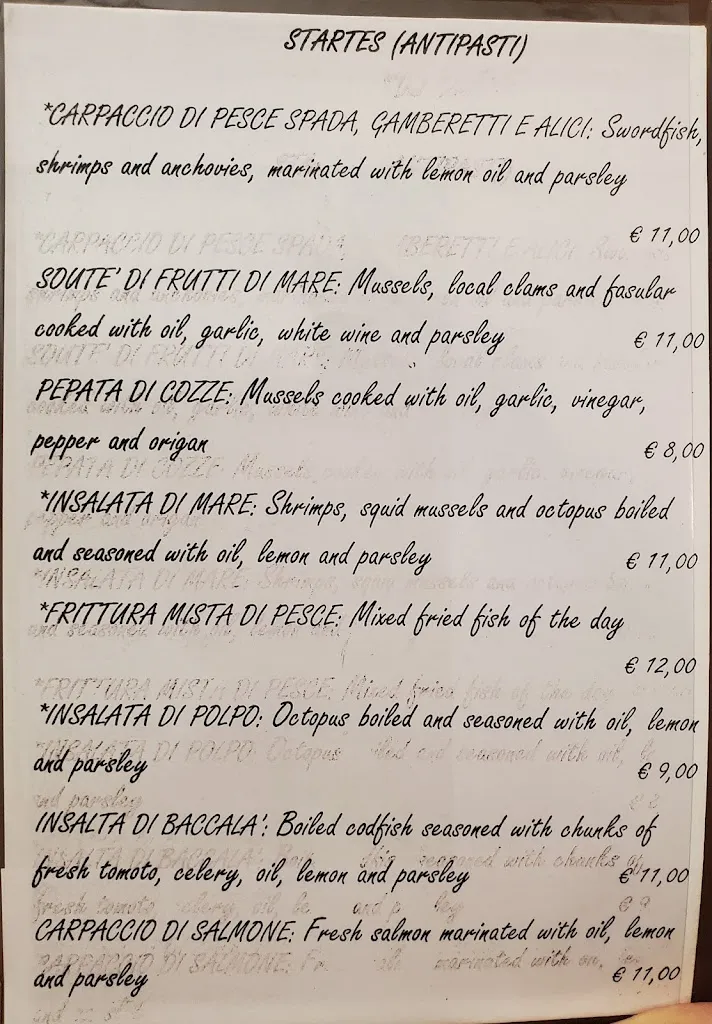 STARTES (ANTIPASTI)
*CARPACCIO DI PESCE SPADA, GAMBERETTI E ALICI: Swordfish,
shrimps and anchovies, marinated with lemon oil and parsley
€ 11,00
SOUTE' DI FRUTTI DI MARE: Mussels, local clams and fasular
cooked with oil, garlic, white wine and parsley € 11,00
PEPATA DI COZZE: Mussels cooked with oil, garlic, vinegar,
pepper and origan € 8,00
*INSALATA DI MARE: Shrimps, squid mussels and octopus boiled
and seasoned with oil, lemon and parsley € 11,00
*FRITTURA MISTA DI PESCE: Mixed fried fish of the day
€ 12,00
*INSALATA DI POLPO: Octopus boiled and seasoned with oil, lemon
and parsley € 9,00
INSALTA DI BACCALA': Boiled codfish seasoned with chunks of
fresh tomoto, celery, oil, lemon and parsley € 11,00
CARPACCIO DI SALMONE: Fresh salmon marinated with oil, lemon
and parsley € 11,00